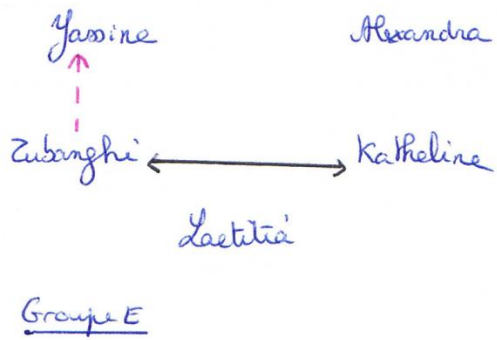 Yassine Alexandra
Zubanghi Katheline
Laetitia
Groupe E